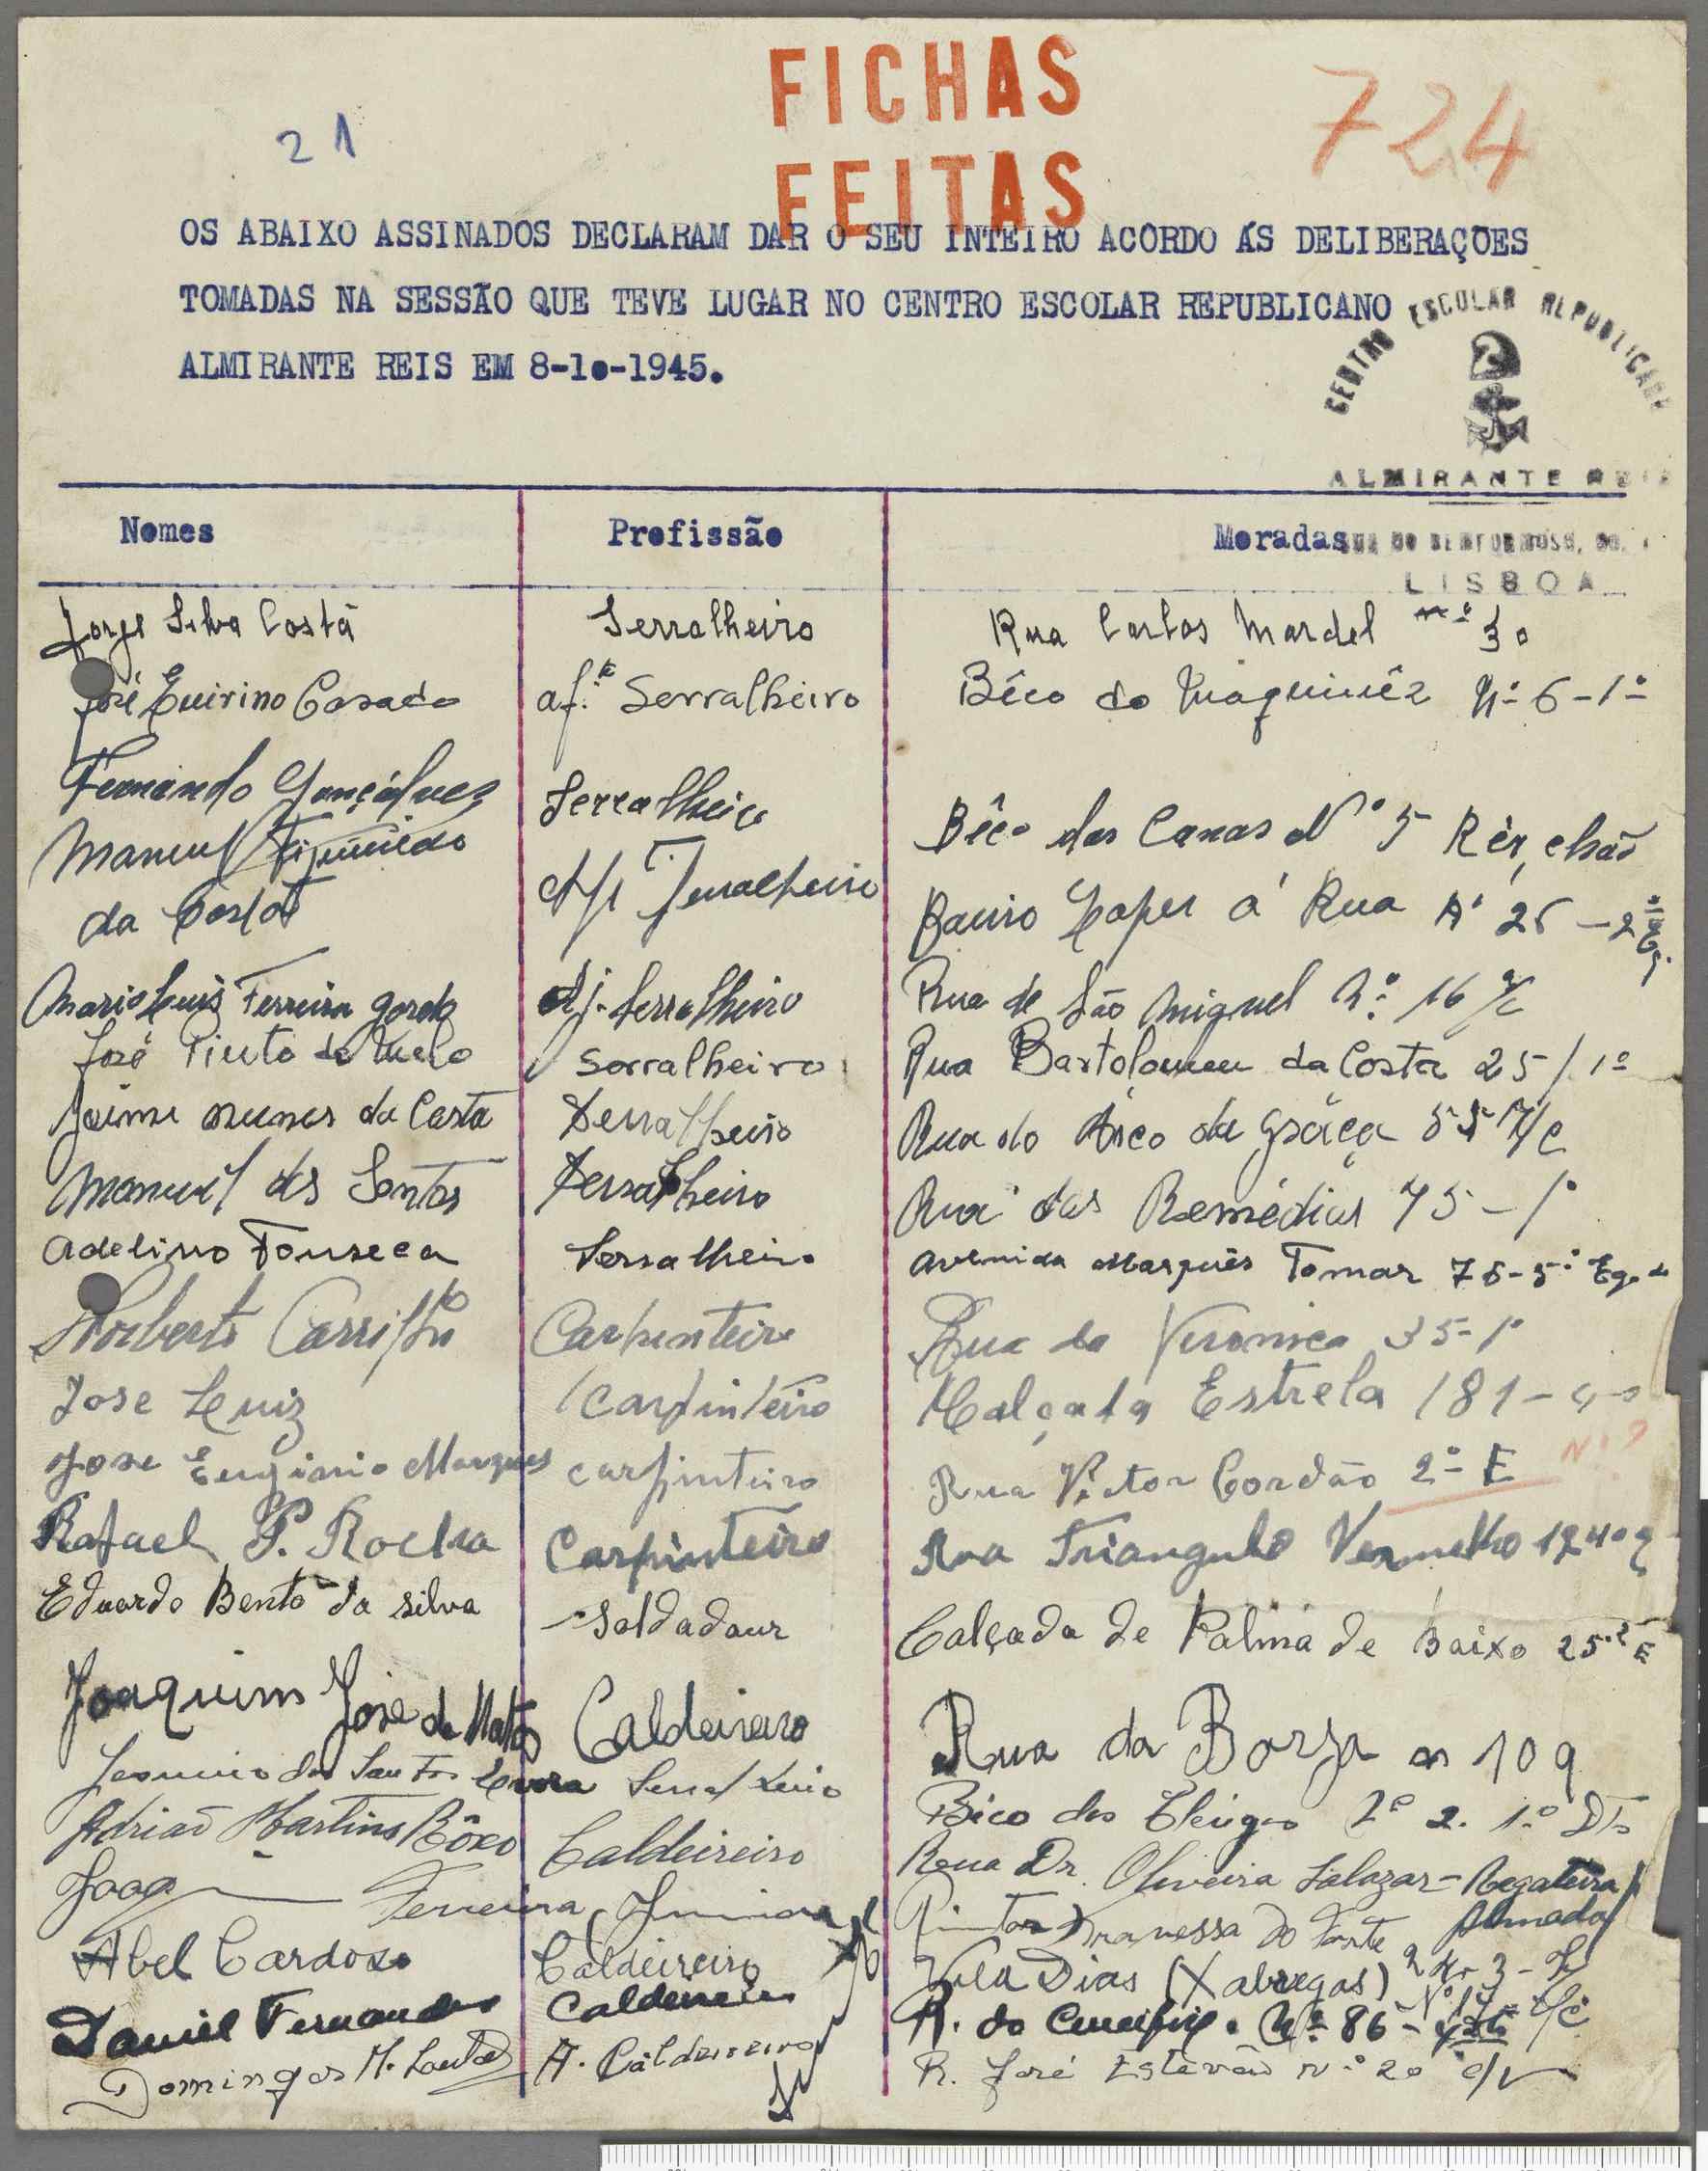 FICHAS
FEITAS
724
21
OS ABAIXO ASSINADOS DECLARAM DAR O SEU INTEIRO ACORDO ÁS DELIBERAÇÕES
TOMADAS NA SESSÃO QUE TEVE LUGAR NO CENTRO ESCOLAR REPUBLICANO
ALMIRANTE REIS EM 8-10-1945.
CENTRO ESCOLAR REPUBLICANO
ALMIRANTE REIS
LISBOA
Nomes Profissão Moradas
Jorge Silva Costa Serralheiro Rua Carlos Mardel nº 30
José Quirino Casado Serralheiro Bêco do Nº 6-1º
Fernando Gonçalves Serralheiro Bêco das Canas Nº 5 Rés chão
Manuel Figueiredo
da Costa Serralheiro Bairro Lopes á Rua A 26-2º Eq.
Mario Luís Ferreira Gordo Aj. Serralheiro Rua de São Miguel Nº 16 r/c
José Pinto de Melo Serralheiro Rua Bartolomeu da Costa 25/1º
Jaime Nunes da Costa Serralheiro Rua do Arco da Graça 55 r/c
Manuel dos Santos Serralheiro Rua dos Remédios 75-1º
Adelino Fonseca Serralheiro Avenida Marquês Tomar 76-5º Eqdo
Norberto Carrilho Carpinteiro Rua da Veronica 35-1º
Jose Luiz Carpinteiro Calçada Estrela 181-
Jose Euginio Marques carpinteiro Rua Victor Cordão 2º E Nº?
Rafael P. Rocha Carpinteiro Rua Triangulo Vermelho
Eduardo Bento da Silva Soldadour Calçada de Palma de Baixo 25-2º E
Joaquim José de Matos Caldeireiro Rua da 109
dos Santos Serralheiro Bêco dos 2. 1º Dto
Adriaõ Martins Bôxo Caldeireiro Rua Dr. Oliveira Salazar - Regateira
Almada
Ferreira Travessa do Forte
Abel Cardoso Caldeireiro Vila Dias (Xabregas)
Daniel Fernandes Caldeireiro R. do Nº 86 - r/c
Domingos M. Santos A. Caldeireiro R. José Estevão nº 20 c/v